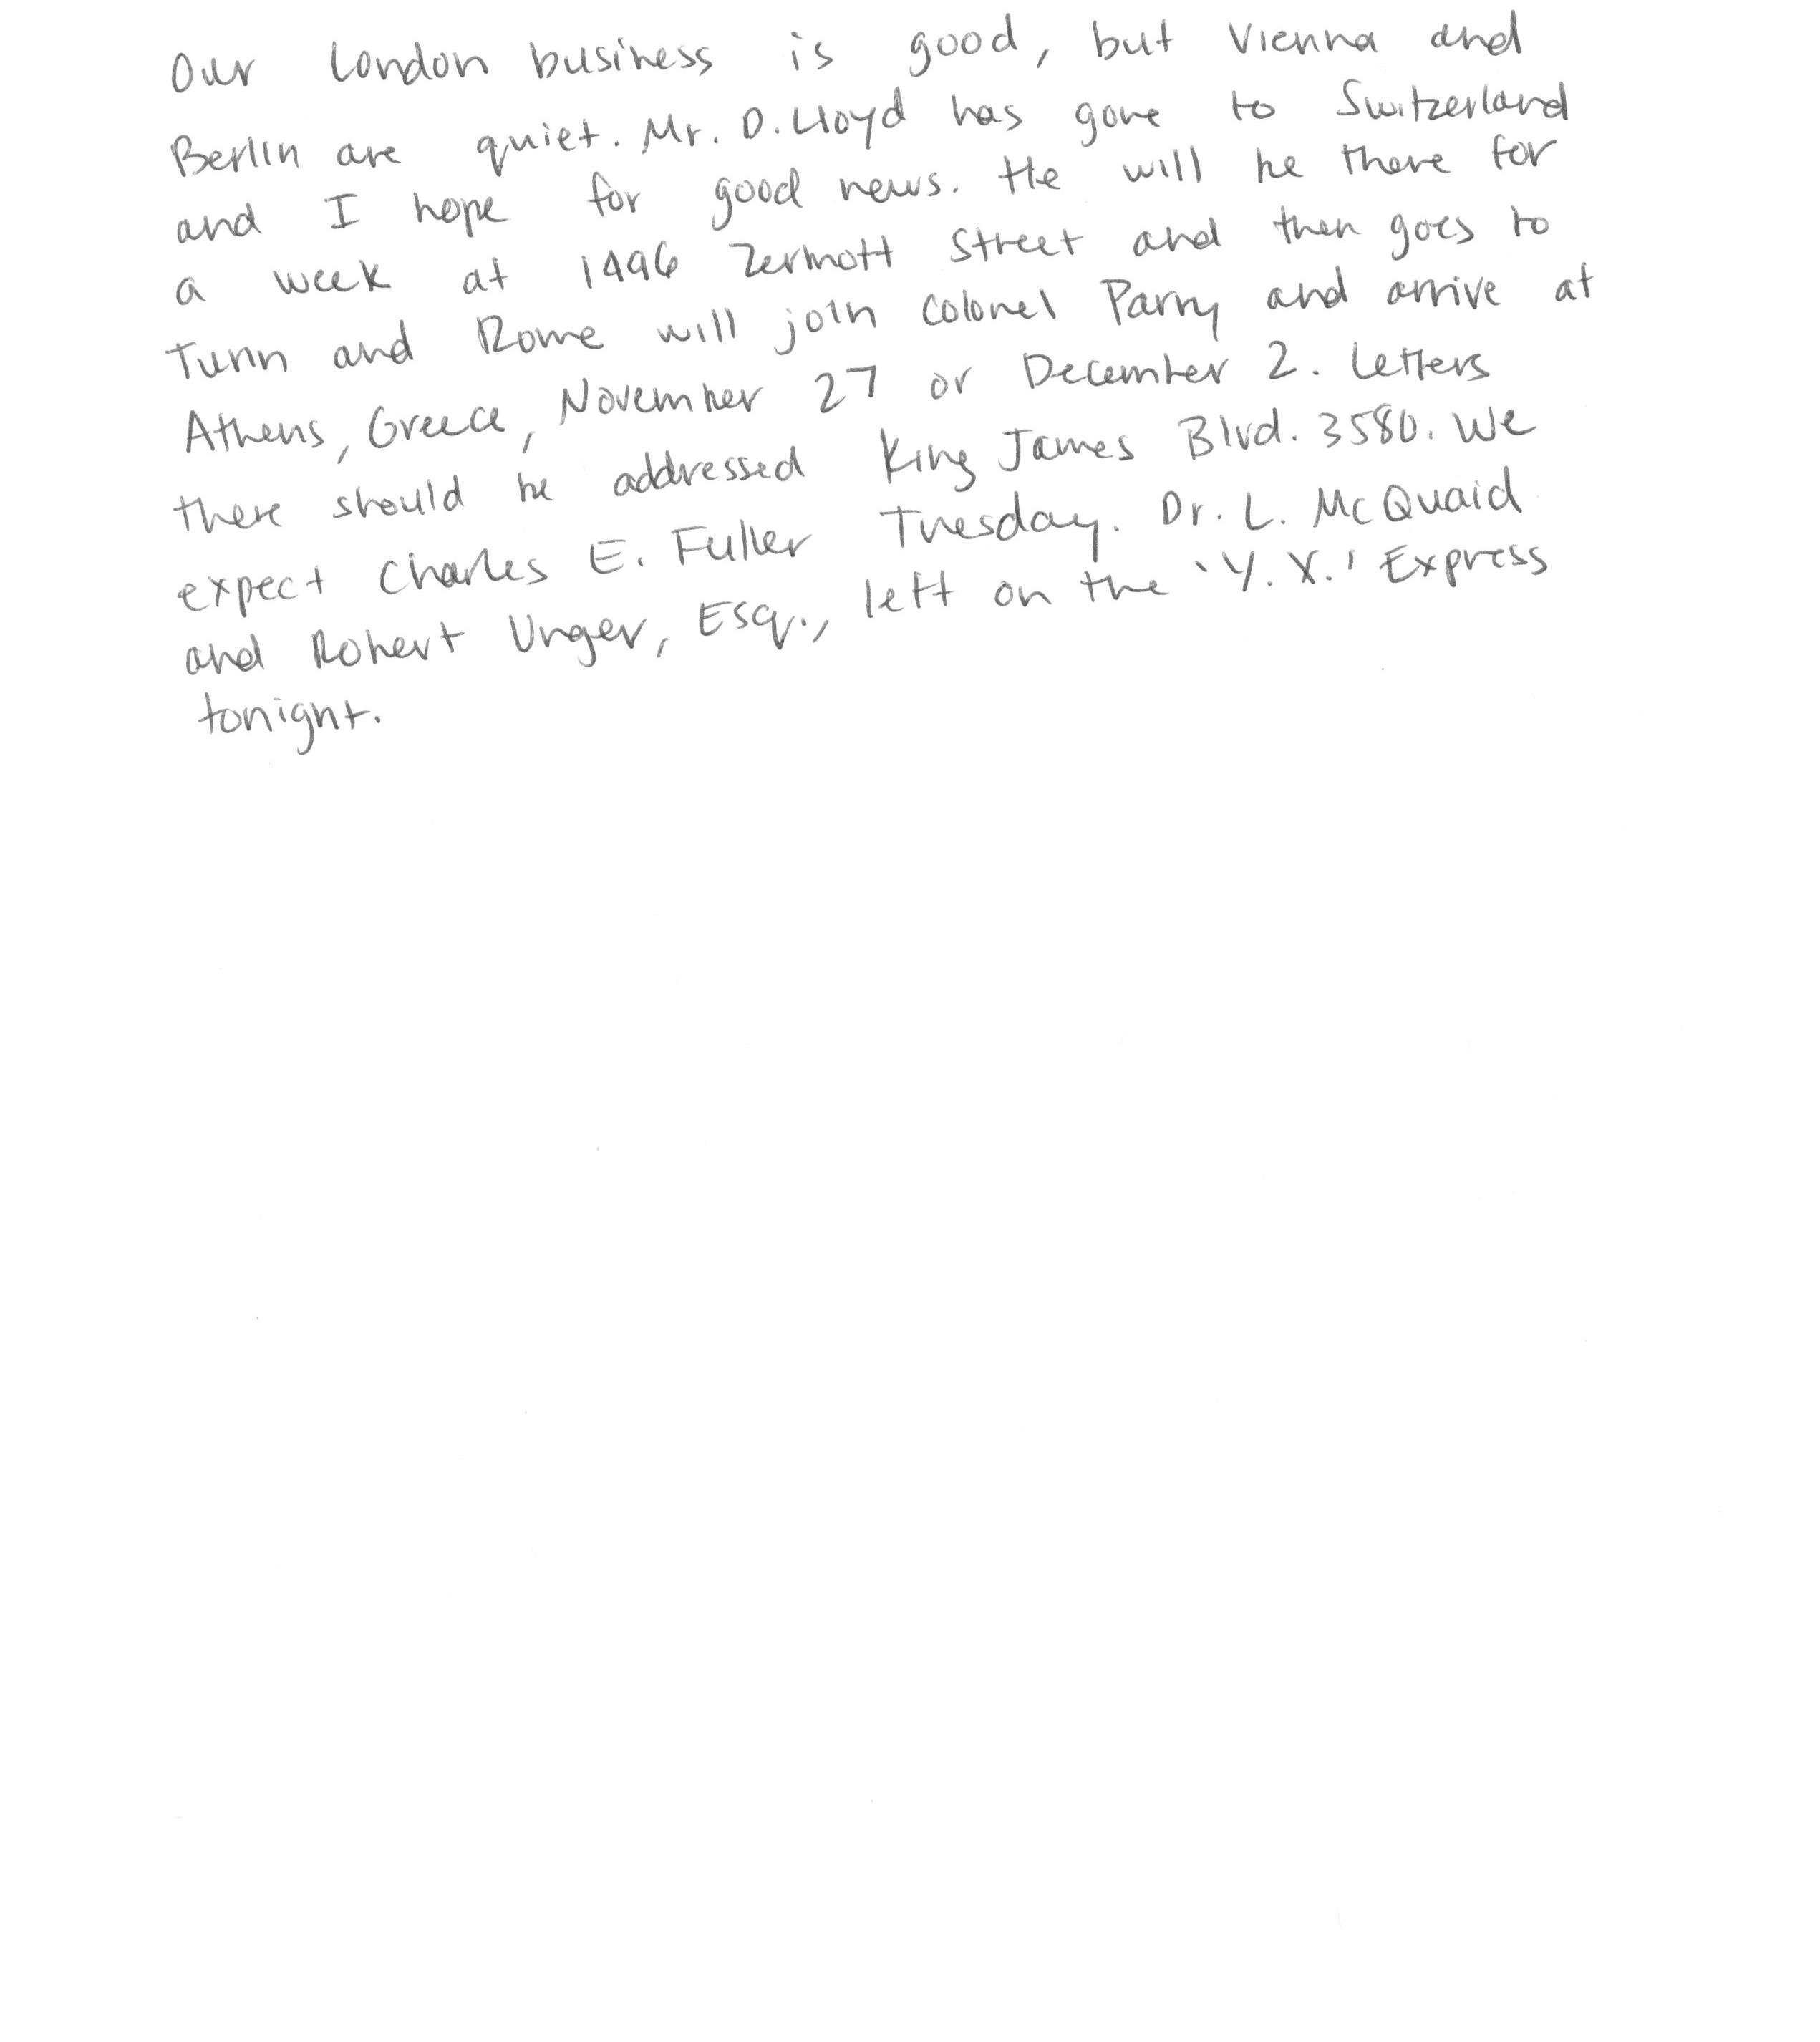 Our London business is good, but Vienna and
Berlin are quiet. Mr. D. Lloyd has gone to Switzerland
and I hope for good news. He will be there for
a week at 1496 Zermott Street and then goes to
Turin and Rome will join Colonel Parry and arrive at
Athens, Greece, November 27 or December 2. Letters
there should be addressed King James Blvd. 3580. We
expect Charles E. Fuller Tuesday. Dr. L. McQuaid
and Robert Unger, Esq., left on the 'Y. X.' Express
tonight.